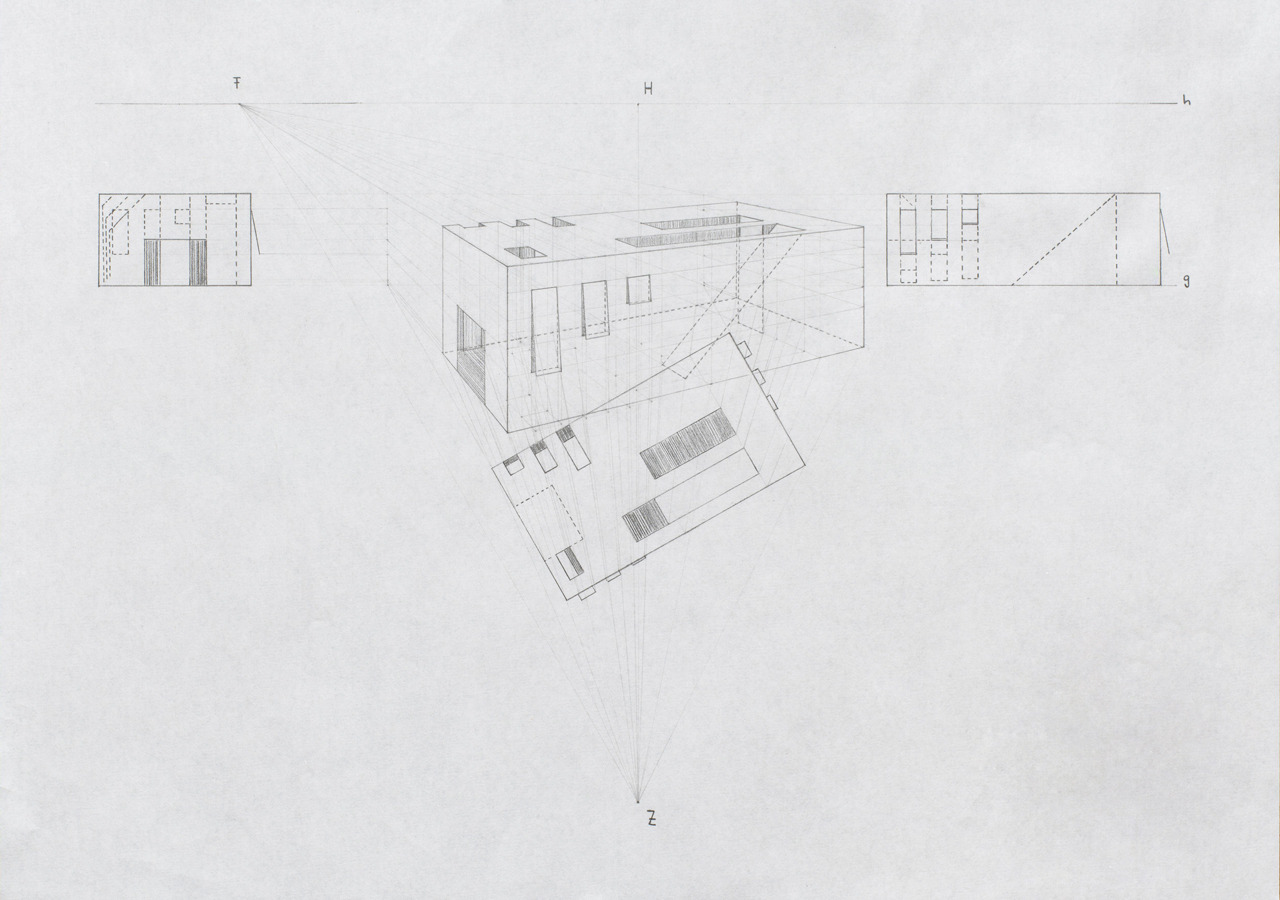 F
H
h
g
Z